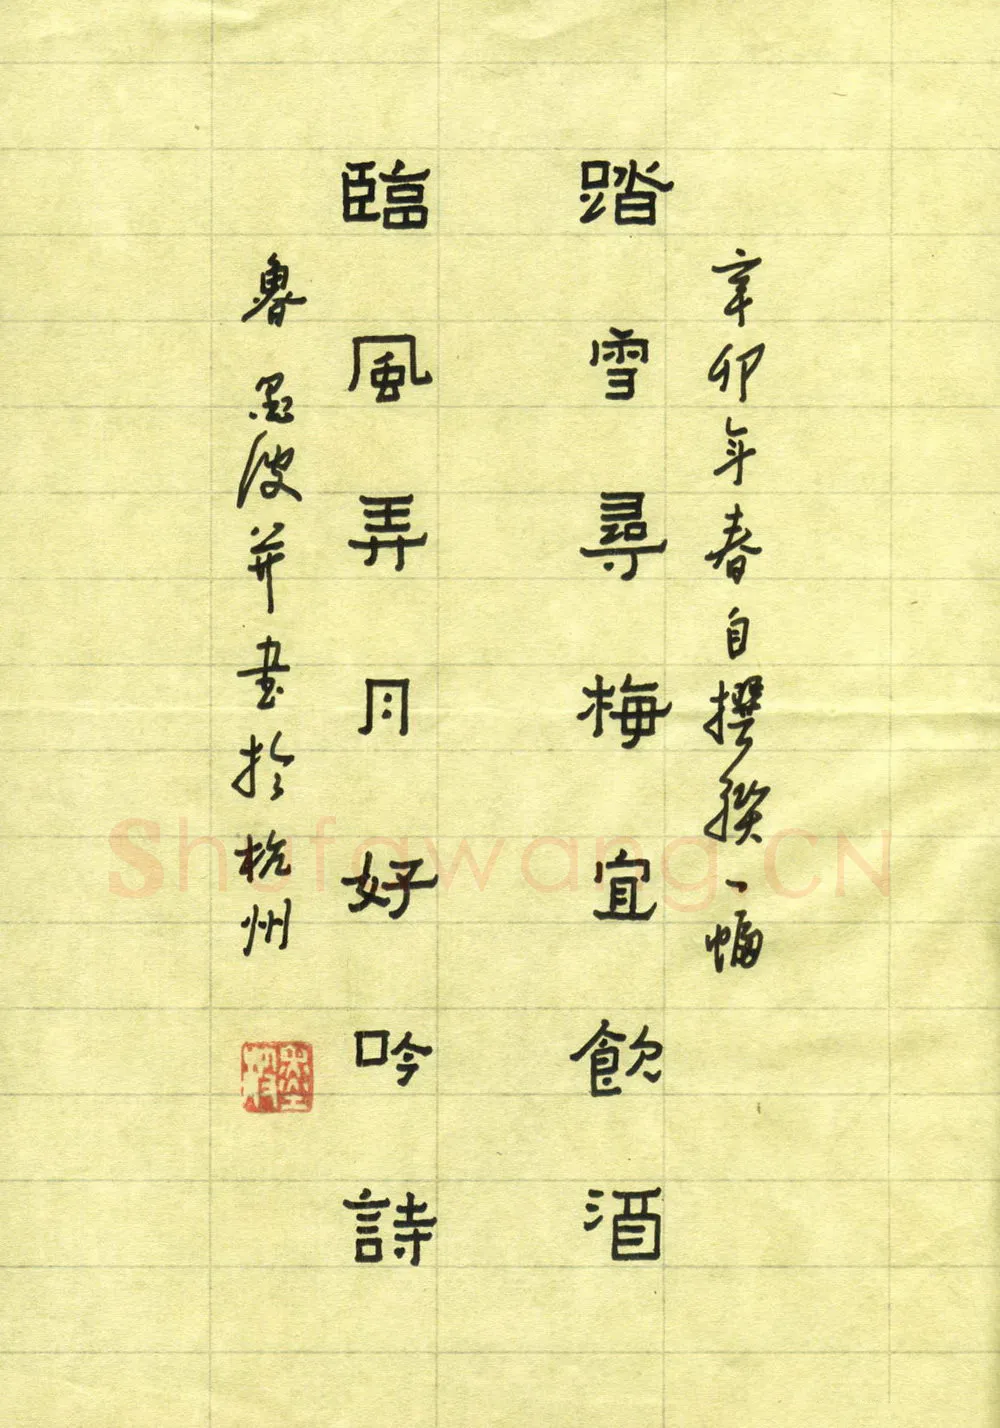 辛卯年春自撰聯一幅
踏雪尋梅宜飲酒
臨風弄月好吟詩
魯墨波并書於杭州
ShufawangCN